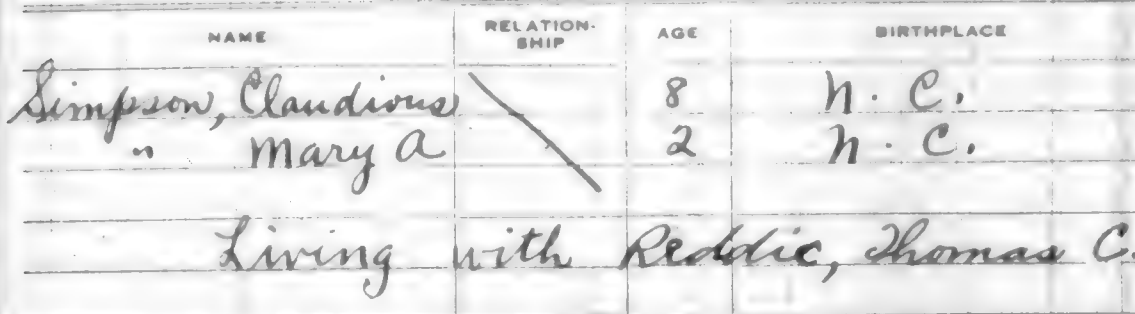 NAME RELATION-SHIP AGE BIRTHPLACE
Simpson, Claudious 8 N. C.
" Mary A 2 N. C.
Living with Reddic, Thomas C.